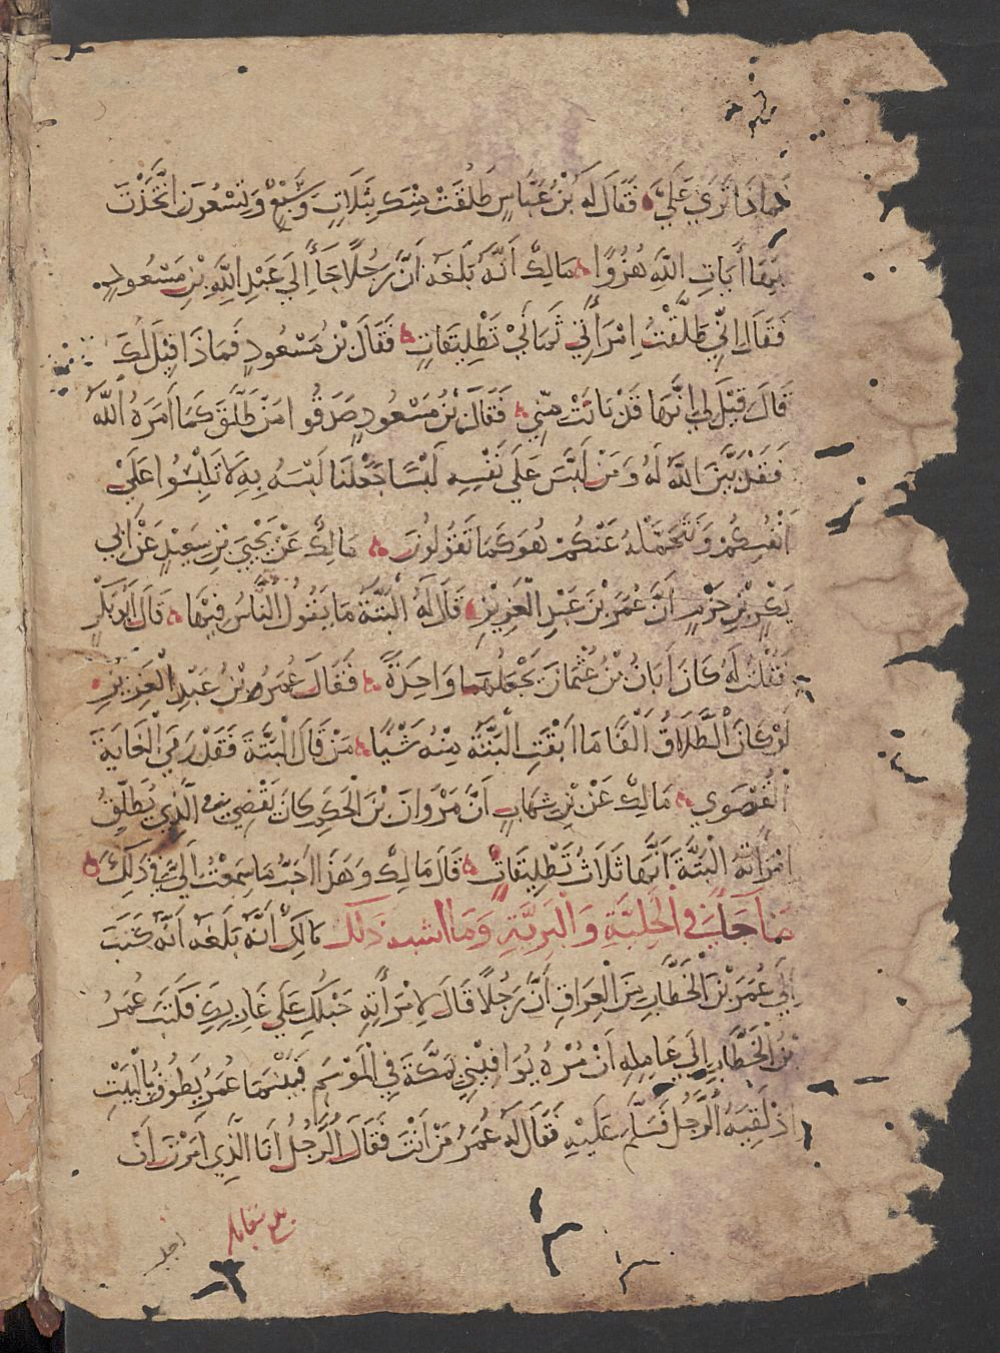 فَمَاذَا تَرَي عَلَيَّ فَقَالَ لَهُ بْنُ عَبَّاسٍ طَلُقَتْ مِنْكَ بِثَلَاثٍ وَسَبْعٌ وَتِسْعُونَ اتَّخَذْتَ
بِهَا أَيَاتِ اللَّهِ هُزُوًا مَالِكٌ أَنَّهُ بَلَغَهُ أَنَّ رَجُلًا جَاءَ إِلَي عَبْدِ اللَّهِ بْنِ مَسْعُودٍ
فَقَالَ إِنِّي طَلَّقْتُ امْرَأَتِي ثَمَانِيَ تَطْلِيقَاتٍ فَقَالَ بْنُ مَسْعُودٍ فَمَاذَا قِيلَ لَكَ
قَالَ قِيلَ لِي إِنَّهَا قَدْ بَانَتْ مِنِّي فَقَالَ بْنُ مَسْعُودٍ صَدَقُوا مَنْ طَلَّقَ كَمَا أَمَرَهُ اللَّهُ
فَقَدْ بَيَّنَ اللَّهُ لَهُ وَمَنْ لَبَّسَ عَلَي نَفْسِهِ لَبْسًا جَعَلْنَا لَبْسَهُ بِهِ لَا تَلْبِسُوا عَلَيْ
أَنْفُسِكُمْ وَنَتَحَمَّلُهُ عَنْكُمْ هُوَ كَمَا تَقُولُونَ مَالِكٌ عَنْ يَحْيَي بْنِ سَعِيدٍ عَنْ أَبِي
بَكْرِ بْنِ حَزْمٍ أَنَّ عُمَرَ بْنَ عَبْدِ الْعَزِيزِ قَالَ لَهُ الْبَتَّةُ مَا يَقُولُ النَّاسُ فِيهَا قَالَ أَبُو بَكْرٍ
فَقُلْتُ لَهُ كَانَ أَبَانُ بْنُ عُثْمَانَ يَجْعَلُهَا وَاحِدَةً فَقَالَ عُمَرُ بْنُ عَبْدِ الْعَزِيزِ
لَوْ كَانَ الطَّلَاقُ أَلْفًا مَا أَبْقَتِ الْبَتَّةُ مِنْهُ شَيْئًا مَنْ قَالَ الْبَتَّةَ فَقَدْ رَمَي الْغَايَةَ
الْقُصْوَي مَالِكٌ عَنْ بْنِ شِهَابٍ أَنَّ مَرْوَانَ بْنَ الْحَكَمِ كَانَ يَقْضِي فِي الَّذِي يُطَلِّقُ
امْرَأَتَهُ الْبَتَّةَ أَنَّهَا ثَلَاثُ تَطْلِيقَاتٍ قَالَ مَالِكٌ وَهَذَا أَحَبُّ مَا سَمِعْتُ إِلَيَّ فِي ذَلِكَ
مَا جَاءَ فِي الْخَلِيَّةِ وَالْبَرِيَّةِ وَمَا أشبه ذلك مَالِكٌ أَنَّهُ بَلَغَهُ أَنَّهُ كُتِبَ
إِلَي عُمَرَ بْنِ الْخَطَّابِ مِنَ الْعِرَاقِ أَنَّ رَجُلًا قَالَ لِامْرَأَتِهِ حَبْلُكِ عَلَي غَارِبِكِ فَكَتَبَ عُمَرُ
بْنُ الْخَطَّابِ إِلَي عَامِلِهِ أَنْ مُرْهُ يُوَافِينِي بِمَكَّةَ فِي الْمَوْسِمِ فَبَيْنَمَا عُمَرُ يَطُوفُ بِالْبَيْتِ
إِذْ لَقِيَهُ الرَّجُلُ فَسَلَّمَ عَلَيْهِ فَقَالَ لَهُ عُمَرُ مَنْ أَنْتَ فَقَالَ الرَّجُلُ أَنَا الَّذِي أَمَرْتَ أَنْ
بلغ مقابلة
اجلب